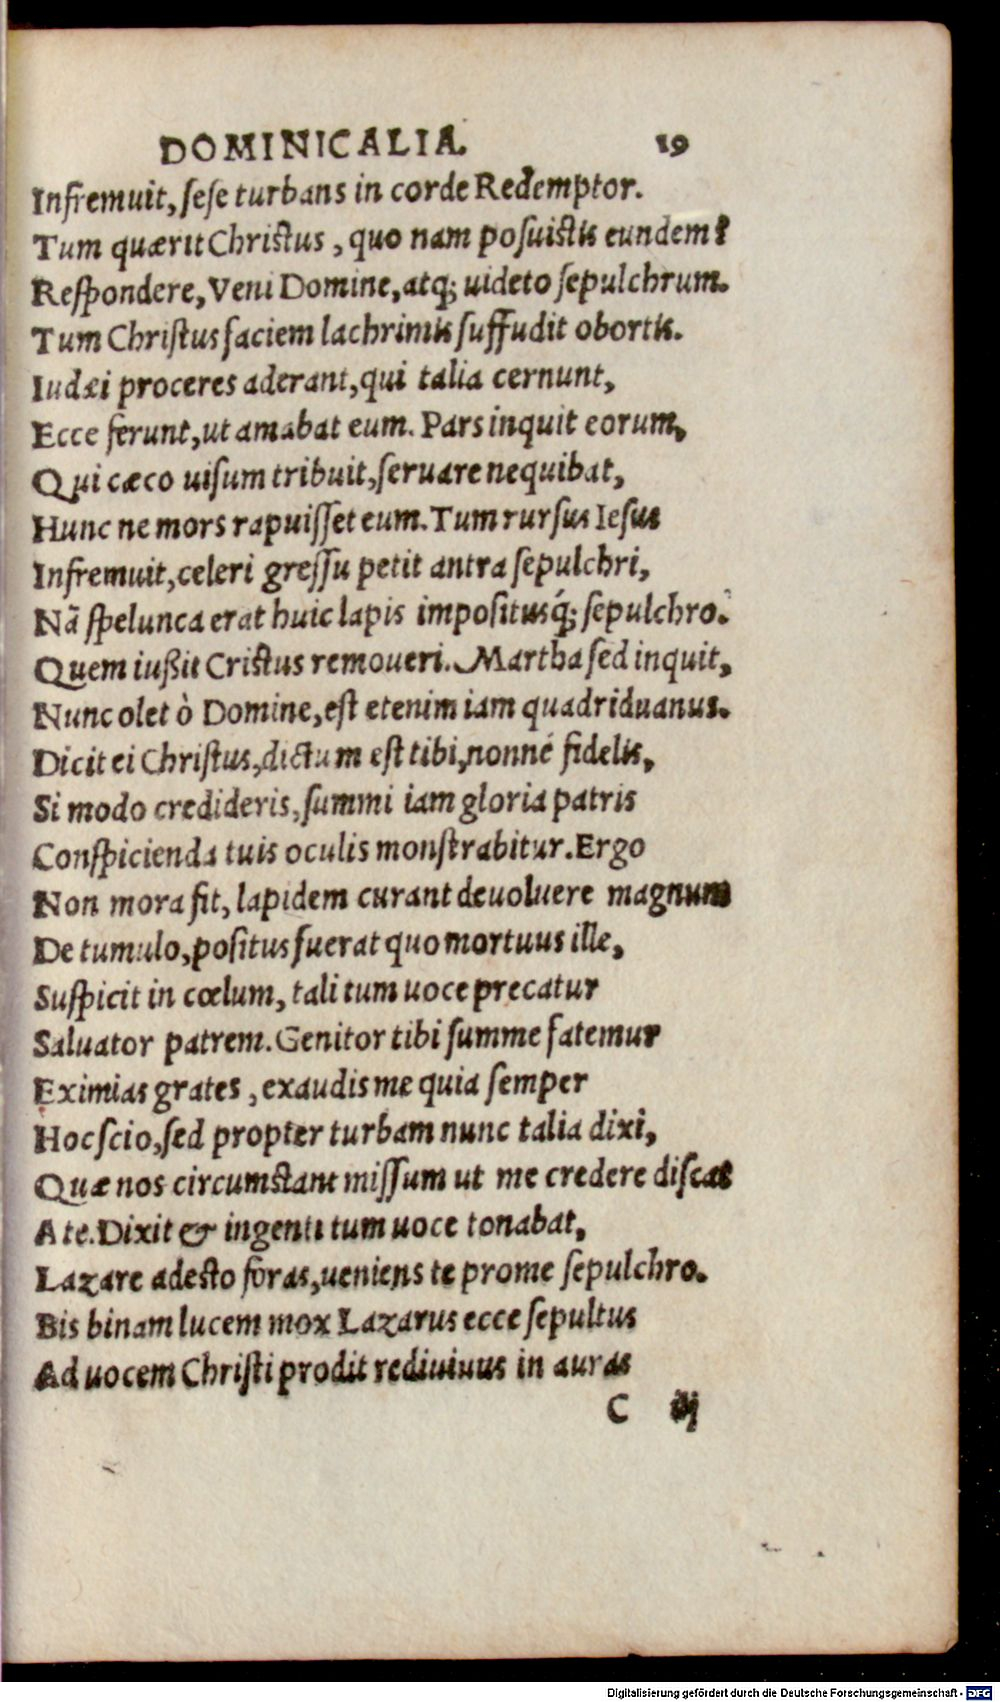 DOMINICALIA. 19
Infremuit, ſeſe turbans in corde Redemptor.
Tum quærit Chriſtus, quo nam poſuiſtis eundem?
Reſpondere, Veni Domine, atq; uideto ſepulchrum.
Tum Chriſtus faciem lachrimis ſuffudit obortis.
Iudæi proceres aderant, qui talia cernunt,
Ecce ferunt, ut amabat eum. Pars inquit eorum,
Qui cæco uiſum tribuit, ſeruare nequibat,
Hunc ne mors rapuiſſet eum. Tum rurſus Ieſus
Infremuit, celeri greſſu petit antra ſepulchri,
Nã ſpelunca erat huic lapis impoſitusq́; ſepulchro.
Quem iußit Criſtus remoueri. Martha ſed inquit,
Nunc olet ò Domine, eſt etenim iam quadriduanus.
Dicit ei Chriſtus, dictum eſt tibi, nonné fidelis,
Si modo credideris, ſummi iam gloria patris
Conſpicienda tuis oculis monſtrabitur. Ergo
Non mora fit, lapidem curant deuoluere magnum
De tumulo, poſitus fuerat quo mortuus ille,
Suſpicit in cœlum, tali tum uoce precatur
Saluator patrem. Genitor tibi ſumme fatemur
Eximias grates, exaudis me quia ſemper
Hoc ſcio, ſed propter turbam nunc talia dixi,
Quæ nos circumſtant miſſum ut me credere diſcat
A te. Dixit & ingenti tum uoce tonabat,
Lazare adeſto foras, ueniens te prome ſepulchro.
Bis binam lucem mox Lazarus ecce ſepultus
Ad uocem Chriſti prodit rediuiuus in auras
C iij
Digitalisierung gefördert durch die Deutsche Forschungsgemeinschaft - DFG